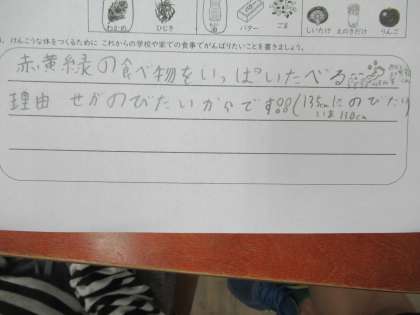 わかめ ひじき 油 バター ごま しいたけ えのきだけ りんご
けんこうな体をつくるために これからの学校や家での食事でがんばりたいことを書きましょう。
赤黄緑の食べ物をいっぱいたべる
理由 せがのびたいからです。(135cmにのびたい
いま110cm